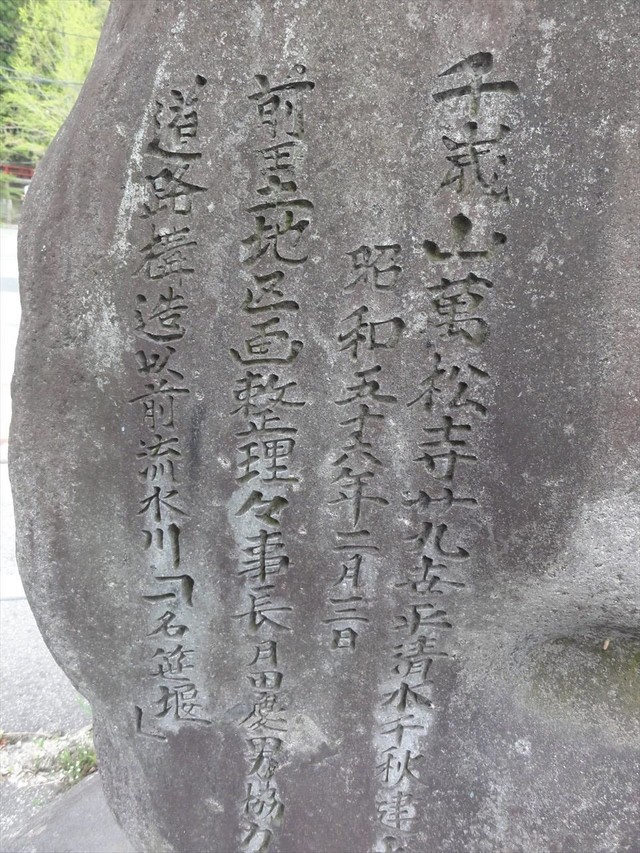 千歳山萬松寺廿九世 清水千秋
昭和五十六年二月三日
前王立地区画整理々事長月田慶男協力
道路構造以前流水川「一名笹堰」